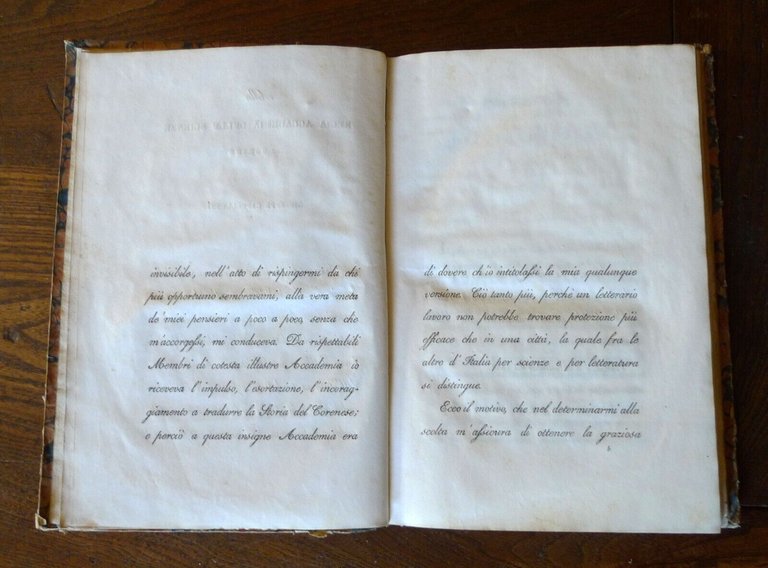 invisibile, nell'atto di rispingermi da chè
più opportuno sembravami, alla vera meta
de' miei pensieri a poco a poco, senza che
m'accorgessi, mi conduceva. Da rispettabili
Membri di cotesta illustre Accademia io
riceveva l'impulso, l'esortazione, l'incorag-
giamento a tradurre la Storia del Corenese;
e perciò a questa insigne Accademia era
di dovere ch'io intitolassi la mia qualunque
versione. Ciò tanto più, perchè un letterario
lavoro non potrebbe trovare protezione più
efficace che in una città, la quale fra le
altre d'Italia per scienze e per letteratura
si distingue.
Ecco il motivo, che nel determinarmi alla
scelta m'assicura di ottenere la graziosa